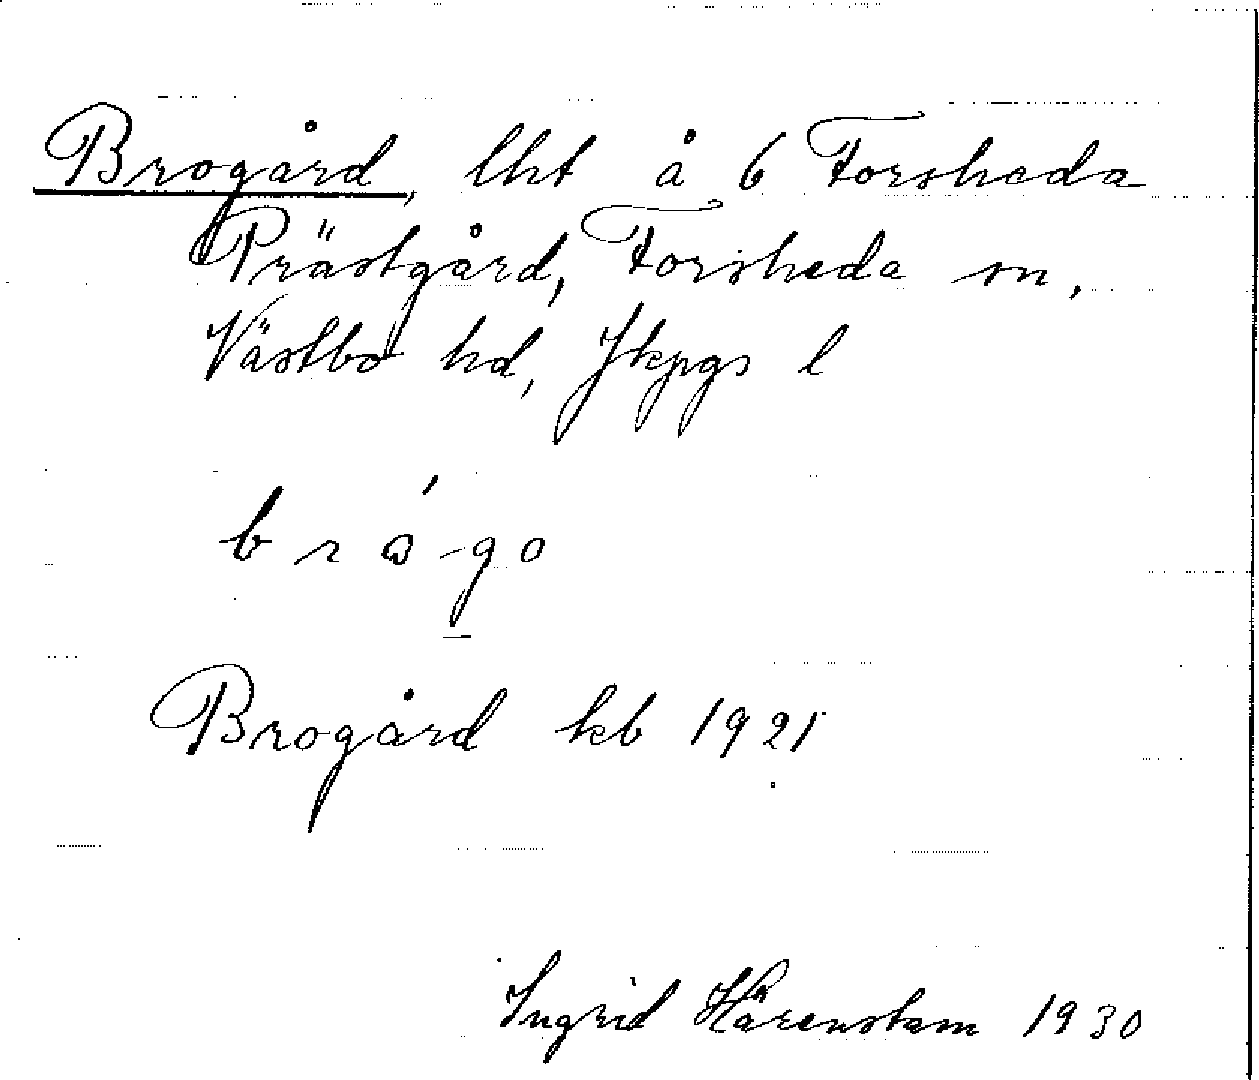 Brogård, lht å 6 Forsheda
Prästgård, Forsheda sn,
Västbo hd, Jkpgs l
bró-go
Brogård kb 1921
Ingrid Härenstam 1930